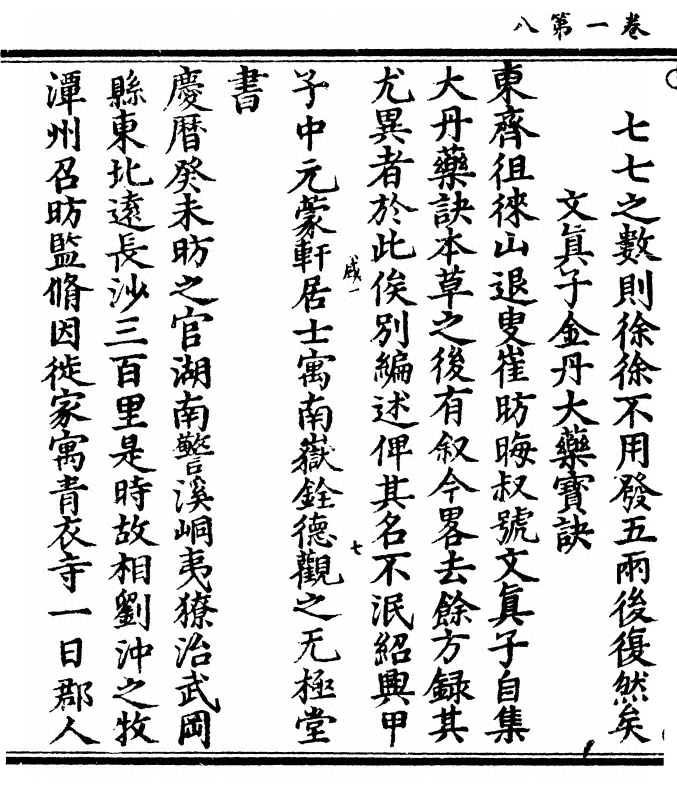 卷一第八
七七之數則徐徐不用發五兩後復然矣
文眞子金丹大藥寶訣
東齊徂徠山退叟崔昉晦叔號文眞子自集
大丹藥訣本草之後有叙今畧去餘方録其
尤異者於此俟別編述俾其名不泯紹興甲
咸一
七
子中元蒙軒居士寓南嶽銓德觀之无極堂
書
慶曆癸未昉之官湖南警溪峒夷獠治武岡
縣東北遠長沙三百里是時故相劉沖之牧
潭州召昉監脩因徙家寓青衣寺一日郡人